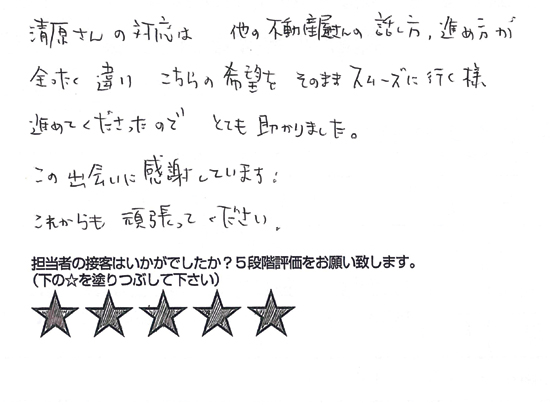 清原さんの対応は 他の不動産屋さんの話し方、進め方が
全ったく違い こちらの希望を そのままスムーズに行く様
進めてくださったので とても助かりました。
この出会いに感謝しています!
これからも頑張ってください。
担当者の接客はいかがでしたか?5段階評価をお願い致します。
(下の☆を塗りつぶして下さい)